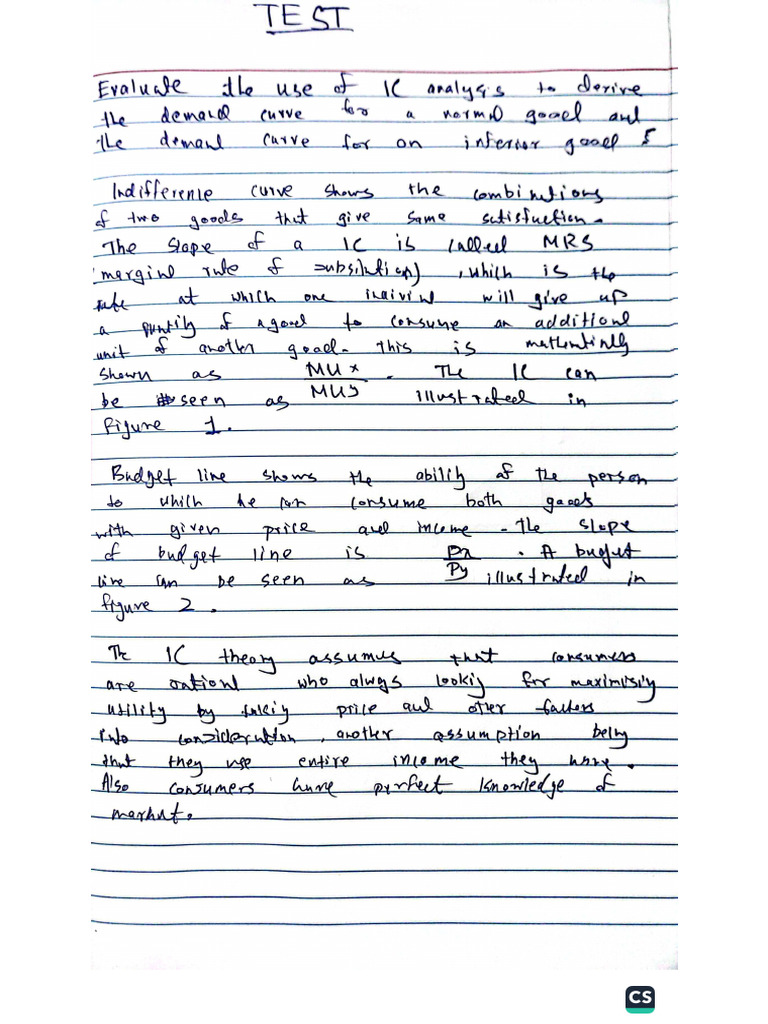 TEST
Evaluate the use of IC analysis to derive
the demand curve for a normal good and
the demand curve for an inferior good
Indifference curve shows the combinations
of two goods that give same satisfaction.
The slope of a IC is called MRS
(marginal rate of subsitution), which is the
rate at which one will give up
a of a good to consume an additional
unit of another good. This is
shown as MUx / MUy . The IC can
be seen as illustrated in
figure 1.
Budget line shows the ability of the person
to which he can consume both goods
with given price and income. The slope
of budget line is Px / Py . A budget
line can be seen as illustrated in
figure 2.
The IC theory assumes that consumers
are rational who always looking for maximising
utility by taking price and other factors
into consideration, another assumption being
that they use entire income they have.
Also consumers have perfect knowledge of
market.
CS